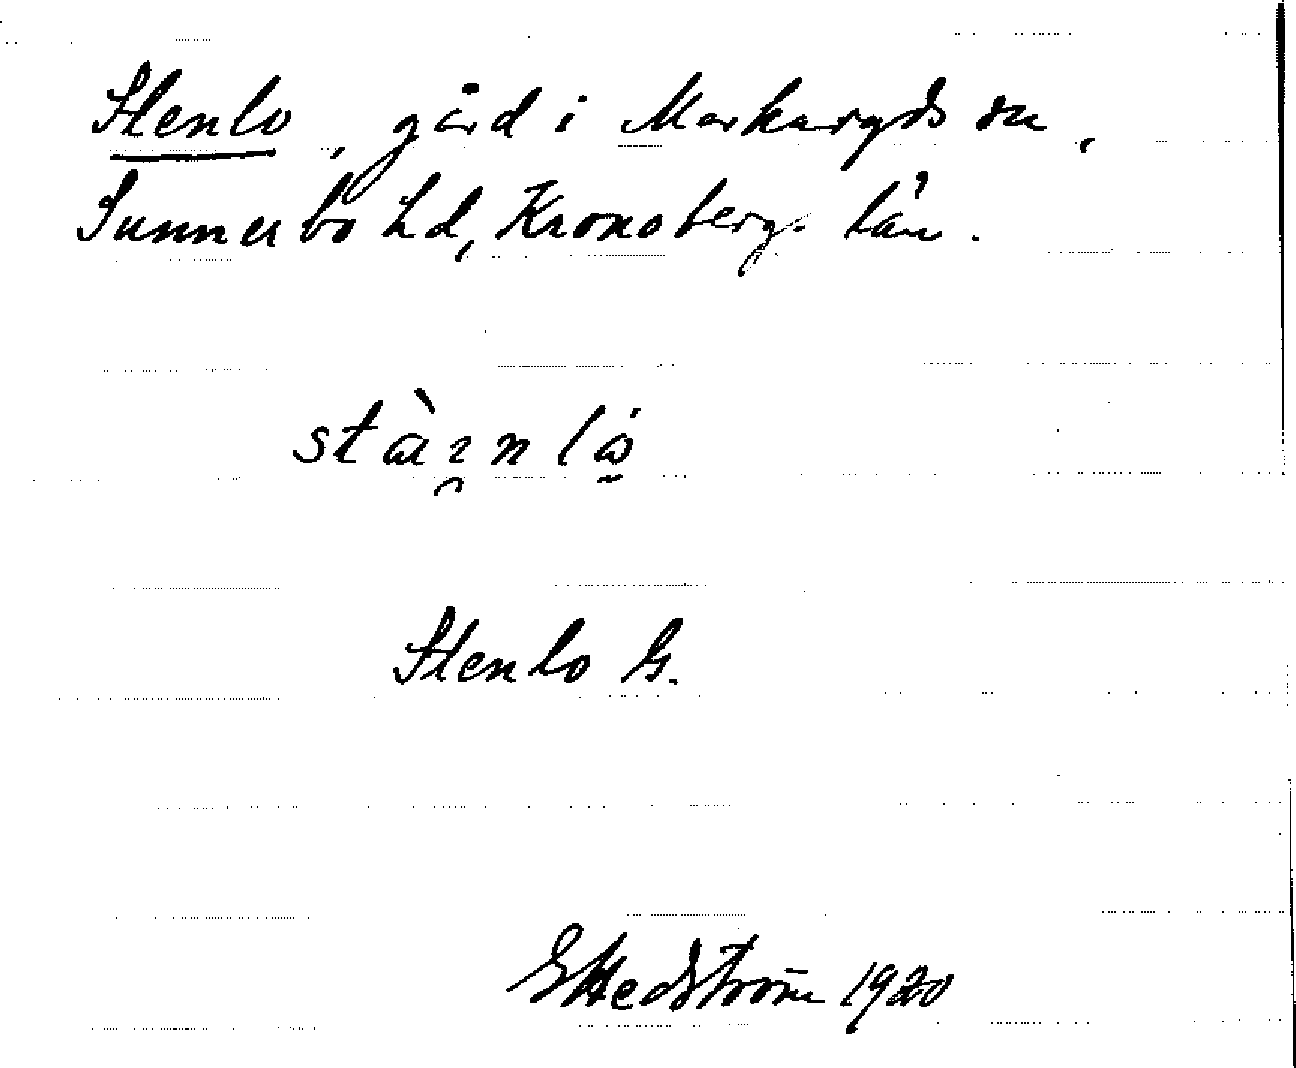 Stenlo, gård i Markaryds sn,
Sunnerbo hd, Kronobergs län.
Stenlo G.
G Hedström 1920